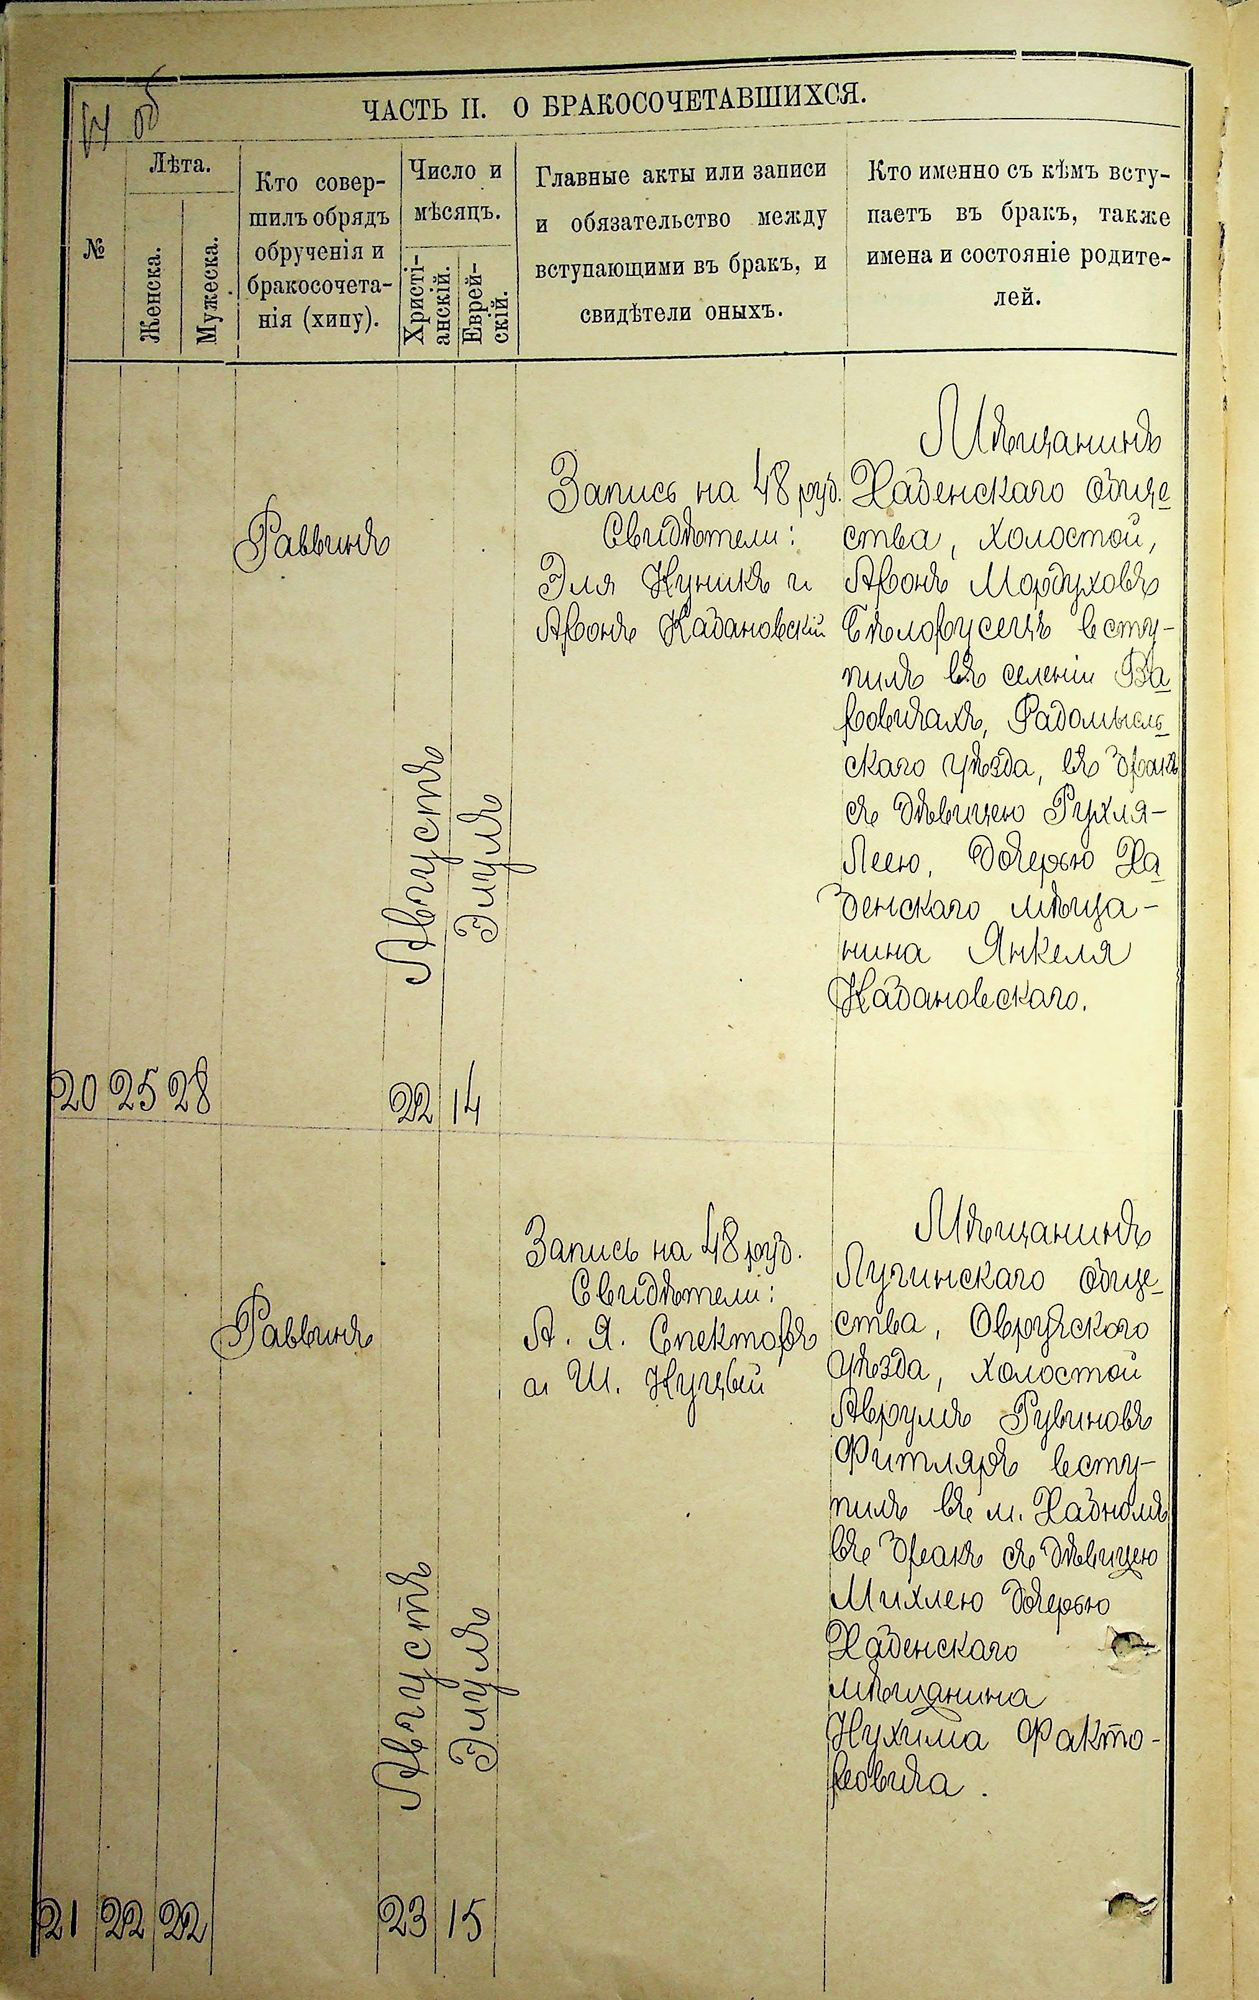 об
ЧАСТЬ II. О БРАКОСОЧЕТАВШИХСЯ.
№
Лѣта.
Женска.
Мужеска.
Кто совер-
шилъ обрядъ
обрученія и
бракосочета-
нія (хипу).
Число и
мѣсяцъ.
Христі-
анскій.
Еврей-
скій.
Главные акты или записи
и обязательство между
вступающими въ бракъ, и
свидѣтели оныхъ.
Кто именно съ кѣмъ всту-
паетъ въ бракъ, также
имена и состояніе родите-
лей.
20
25
28
Раввинъ
Августъ
22
Элуля
14
Запись на 48 руб.
Свидѣтели:
Эля Куникъ и
Аронъ Кабановскій
Мѣщанинъ
Хабенскаго обще
ства, холостой,
Аронъ Мордуховъ
Бѣлорусецъ всту-
пилъ въ селеніи Ва
ровичахъ, Радомысль
скаго уѣзда, въ бракъ
съ дѣвицею Рухля-
Леею, дочерью Ха
бенскаго мѣща-
нина Янкеля
Кабановскаго.
21
22
22
Раввинъ
Августъ
23
Элуля
15
Запись на 48 руб.
Свидѣтели:
А. Я. Спекторъ
и Ш. Куцый
Мѣщанинъ
Лугинскаго обще
ства, Овручскаго
уѣзда, холостой
Аврумъ Рувиновъ
Фитляръ всту-
пилъ въ м. Хабномъ
въ бракъ съ дѣвицею
Михлею дочерью
Хабенскаго
мѣщанина
Нухима Факто-
ровича.